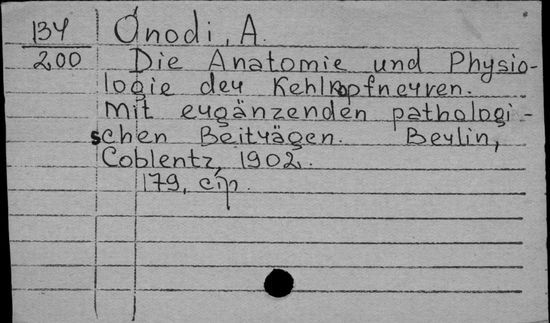 134 Onodi, A.
200 Die Anatomie und Physio-
logie der Kehlkopfnerven.
Mit ergänzenden pathologi-
schen Beiträgen. Berlin,
Coblentz, 1902.
179, стр.